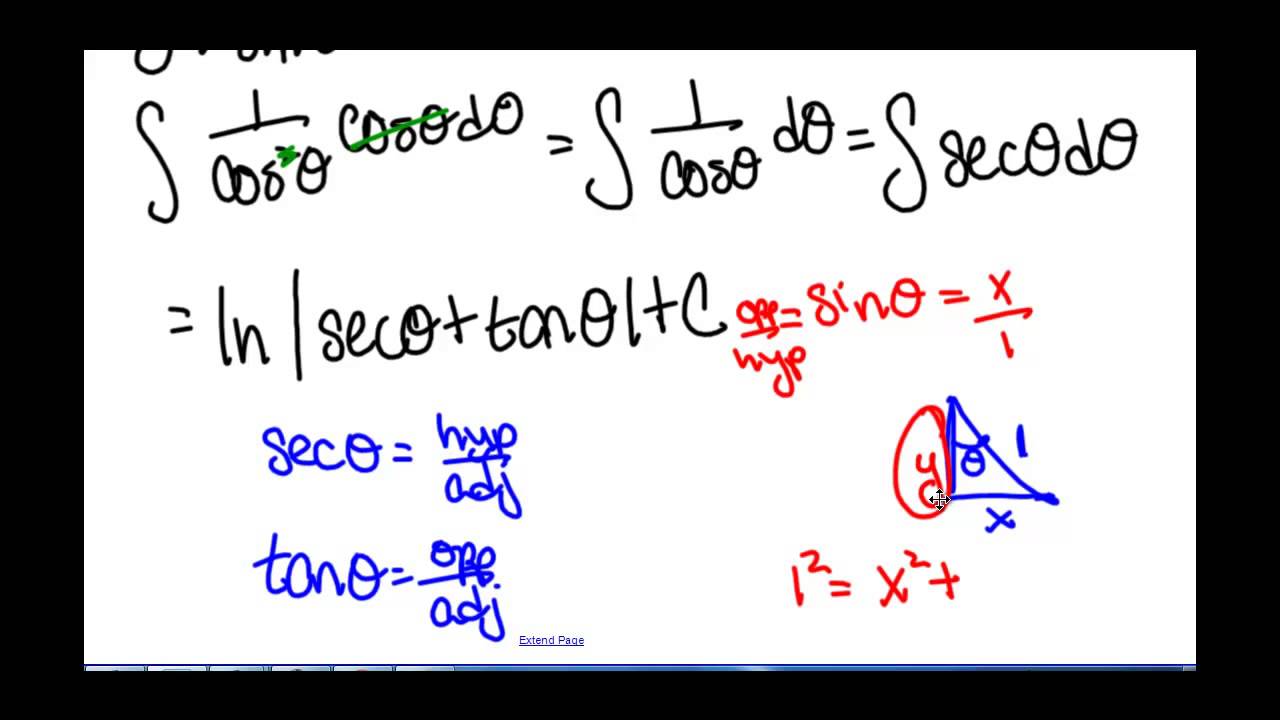 ∫ 1/cos²θ cosθdθ = ∫ 1/cosθ dθ = ∫ secθdθ
= ln|secθ+tanθ|+C
opp/hyp = sinθ = x/1
secθ = hyp/adj
θ 1
x
tanθ = opp/adj
1² = x² +
Extend Page